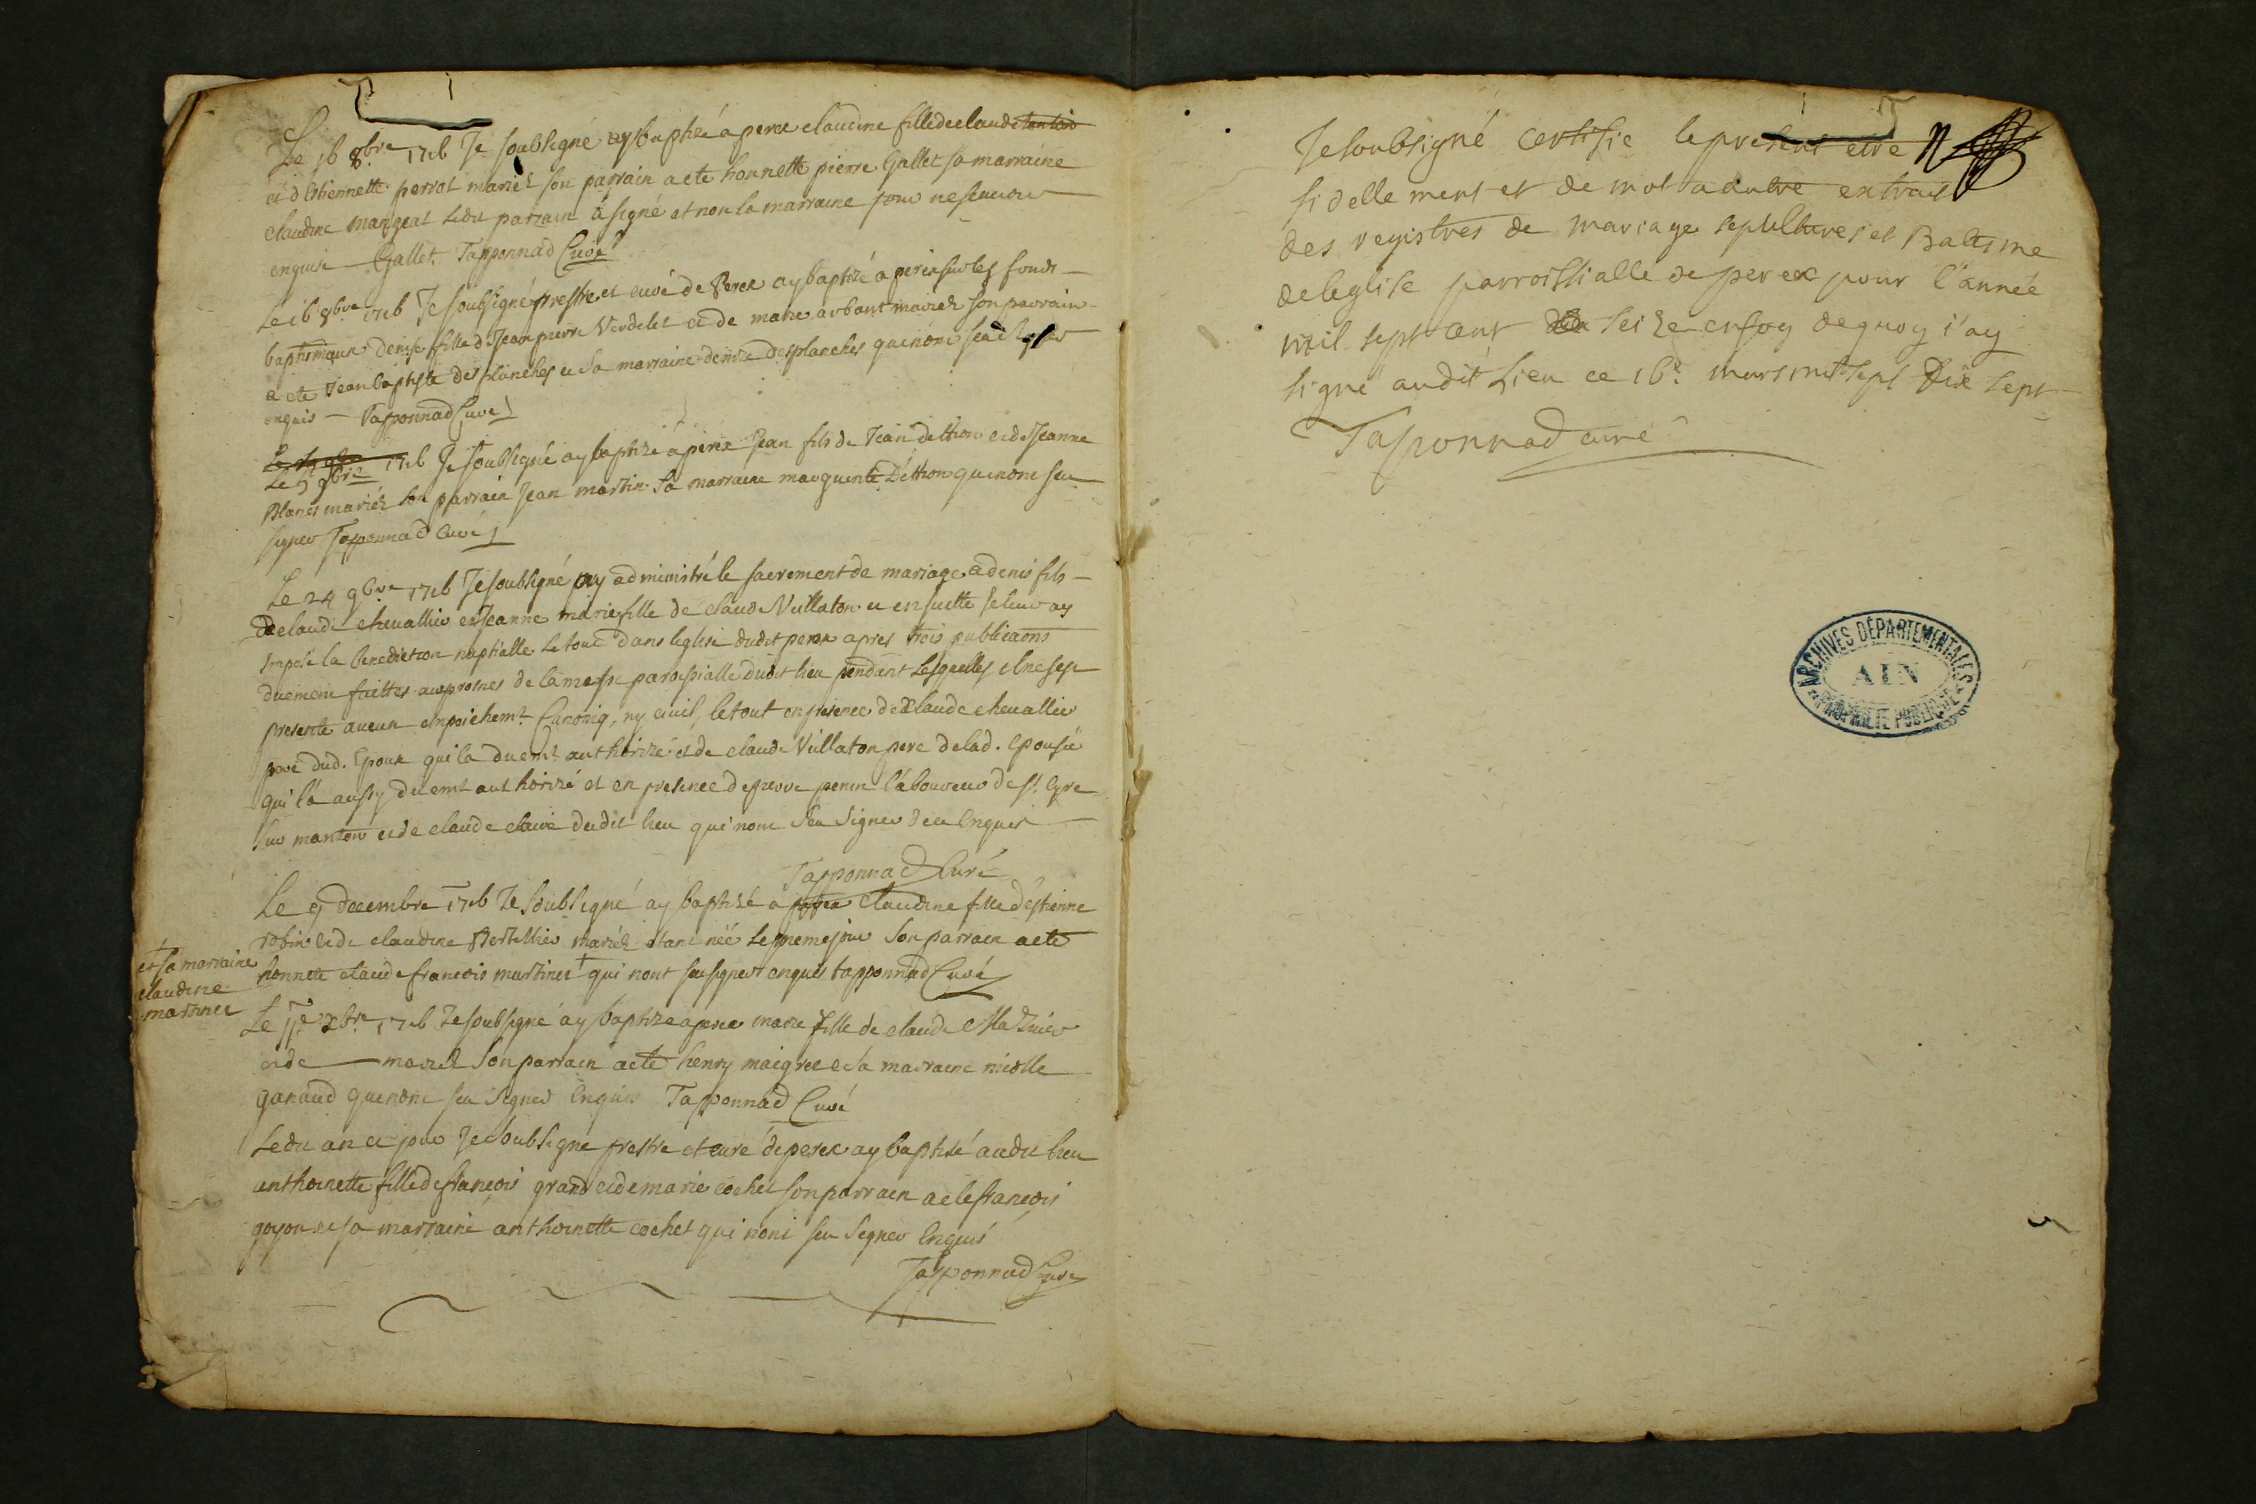 Le 16 8bre 1716 Je soubsigné ay baptizé a perex claudine fille de claude
et d'Estiennette perrat mariéz son parrain a ete honnette pierre Gallet sa marraine
claudine mangeat Ledit parrain a signé et non la marraine pour ne scavoir
enquise Gallet Tapponnad Curé
Le 16 8bre 1716 Je soubsigné prestre et curé de Perex ay baptizé a perex sur les fonds
baptismaux denise fille d Jean pierre Verdelet et de marie arbant mariéz son parrain
a ete Jean baptiste desplanches et sa marraine denize desplanches qui nont seu signer
enquis Tapponnad Curé
Le 9 9bre 1716 Je soubsigné ay baptizé a perex Jean fils de Jean dethion et de Jeanne
Blanc mariéz son parrain Jean martin Sa marraine marguerite Dethion qui nont seu
signer Tapponnad Curé
Le 24 9bre 1716 Je soubsigné ay administré le sacrement de mariage a denis fils
de claude chevallier et Jeanne marie fille de claude Vullaton et ensuitte Je leur ay
Imposé la benediction nuptialle Le tout dans leglise dudit perex apres trois publicaons
duement faittes aux prosnes de la messe paroissialle dudit lieu pendant Lesquelles il ne sest
presenté aucun empeichemt. Canoniq, ny civil, le tout en presence de Claude chevallier
pere dud. Epoux qui la duemt authorizé et de claude Vullaton pere de lad. epouse
qui l'a aussy duemt authorizé et en presence de pierre perrin laboureur de st. Cyre
sur manton et de claude claire dudit lieu qui nont seu signer de ce Enquis
Tapponnad Curé
Le 9 decembre 1716 Je soubsigné ay baptizé a perex Claudine fille d'estienne
robin et de claudine Berthillier mariéz etant née Le meme jour Son parrain a ete
honnette claude francois martinet + qui nont seu signer enquis tapponnad Curé
+ et sa marraine
claudine
martinet
Le 11e xbre 1716 Je soubsigné ay baptizé a perex marie fille de claude Mathieu
et de mariéz Son parrain a ete henry maigret et sa marraine nicolle
ganaud qui nont seu signer Enquis Tapponnad Curé
Ledit an et jour Je soubsigné prestre et curé de perex ay baptisé audit lieu
anthoinette fille de francois grand et de marie cochet son parrain a ete francois
goyon et sa marraine anthoinette cochet qui nont seu signer Enquis
Tapponnad Curé
Je soubsigné certifie le present etre
fidelle ment et de mot a autre extrait
des registres de mariage sepultures et Batesme
de leglise parroissialle de perex pour l'année
mil sept cent seize en foy de quoy j'ay
signé audit Lieu ce 16e. mars mil sept Dix sept
Tapponnad curé
ARCHIVES DÉPARTEMENTALES
AIN
PROPRIÉTÉ PUBLIQUE